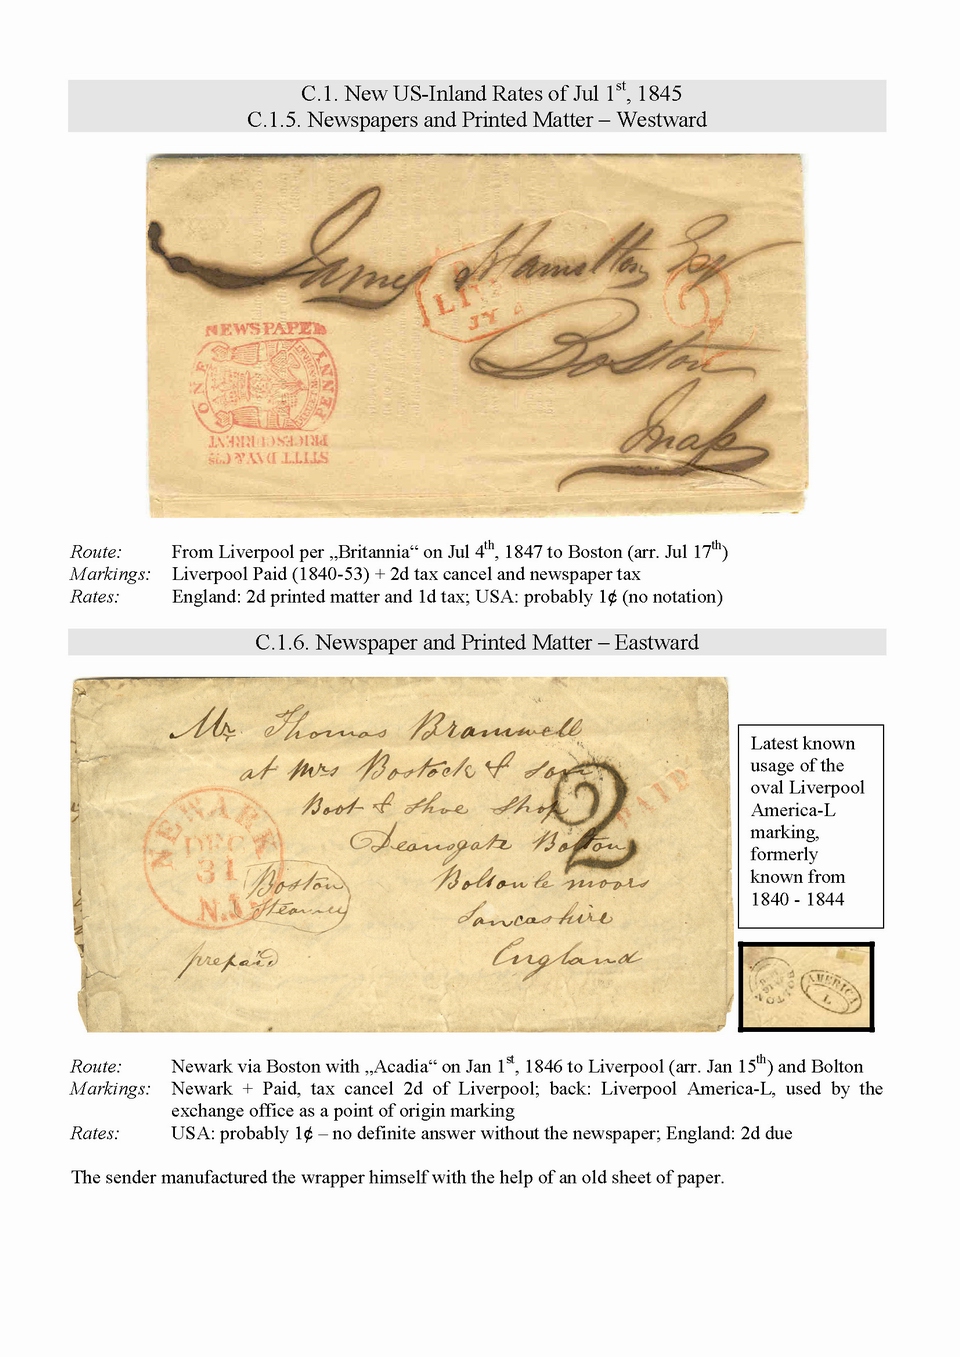 C.1. New US-Inland Rates of Jul 1st, 1845
C.1.5. Newspapers and Printed Matter – Westward
James Hamilton Esqr
Boston
Mass
LIV
JY 4
2
NEWSPAPER
ONE PENNY
PRICES CURRENT
STITT DAY & Cos
Route: From Liverpool per „Britannia“ on Jul 4th, 1847 to Boston (arr. Jul 17th)
Markings: Liverpool Paid (1840-53) + 2d tax cancel and newspaper tax
Rates: England: 2d printed matter and 1d tax; USA: probably 1¢ (no notation)
C.1.6. Newspaper and Printed Matter – Eastward
Mr. Thomas Bramwell
at Mrs Bostock & Son
Boot & Shoe Shop
Deansgate Bolton
Bolton le moors
Lancashire
England
Boston
Steamer
prepaid
NEWARK
DEC
31
N.J.
2
PAID
Latest known
usage of the
oval Liverpool
America-L
marking,
formerly
known from
1840 - 1844
BOSTON
AMERICA
L
Route: Newark via Boston with „Acadia“ on Jan 1st, 1846 to Liverpool (arr. Jan 15th) and Bolton
Markings: Newark + Paid, tax cancel 2d of Liverpool; back: Liverpool America-L, used by the
exchange office as a point of origin marking
Rates: USA: probably 1¢ – no definite answer without the newspaper; England: 2d due
The sender manufactured the wrapper himself with the help of an old sheet of paper.